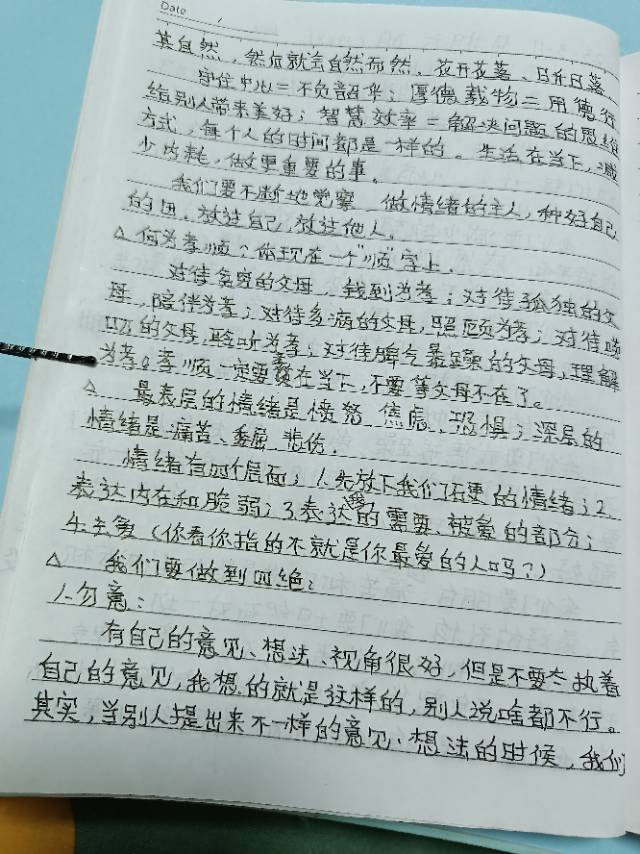 Date
其自然，然后就会自然而然。花开花落、日升日落
守住中心=不负韶华；厚德载物=用德行
给别人带来美好；智慧效率=解决问题的思维
方式，每个人的时间都是一样的。生活在当下，减
少内耗，做更重要的事。
我们要不断地觉察 做情绪的主人，种好自己
的田，放过自己，放过他人。
△ 何为孝顺？体现在一个"顺"字上。
对待贫穷的父母，钱到为孝；对待孤独的父
母，陪伴为孝；对待多病的父母，照顾为孝；对待唠
叨的父母，聆听为孝；对待脾气暴躁的父母，理解
为孝。孝顺一定要在当下，不要等父母不在了。
△ 最表层的情绪是愤怒 焦虑、恐惧；深层的
情绪是痛苦、委屈 悲伤。
情绪有四个层面；1.先放下我们的情绪；2.
表达内在和脆弱；3.表达爱的需要、被爱的部分；
4.去爱（你看你指的不就是你最爱的人吗？）
△ 我们要做到四绝：
1.勿意：
有自己的意见、想法、视角很好，但是不要去执着
自己的意见，我想的就是这样的，别人说啥都不行。
其实，当别人提出来不一样的意见、想法的时候，我们